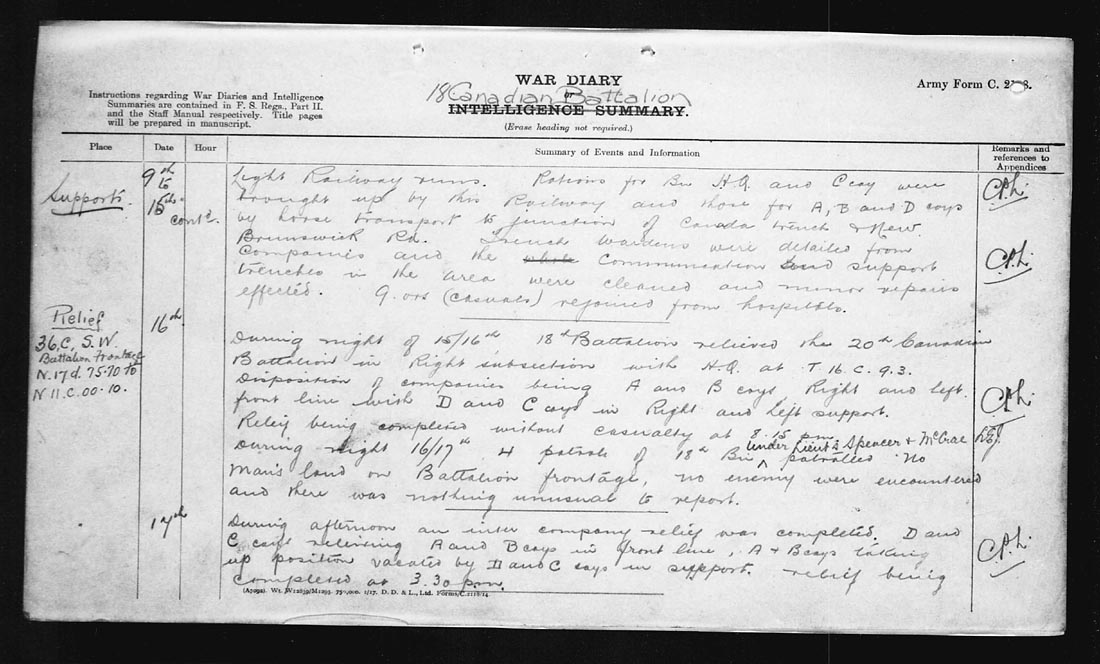 WAR DIARY
or
18 Canadian Battalion
INTELLIGENCE SUMMARY.
(Erase heading not required.)
Army Form C. 2118.
Instructions regarding War Diaries and Intelligence
Summaries are contained in F. S. Regs., Part II.
and the Staff Manual respectively. Title pages
will be prepared in manuscript.
Place
Date
Hour
Summary of Events and Information
Remarks and
references to
Appendices
Supports.
9th
to
15th
cont'd.
Light Railway runs. Rations for Bn H.Q. and C coy were
brought up by this Railway and those for A, B and D coys
by horse transport to junction of Canada trench & New
Brunswick Rd. Trench Wardens were detailed from
Companies and the Communication and support
trenches in the area were cleaned and minor repairs
effected. 9. ors (casuals) rejoined from hospitals.
Relief
36.C, S.W.
Battalion frontage
N.17d.75.70 to
N 11.C.00.10.
16th
During night of 15/16th 18th Battalion relieved the 20th Canadian
Battalion in Right subsection with H.Q. at T 16. C. 9.3.
Disposition of companies being A and B coys Right and Left
front line with D and C coys in Right and Left support.
Relief being completed without casualty at 8.15 pm
During night 16/17th 4 patrols of 18th Bn under Lieut's Spencer & McCrae patrolled No
Man's land on Battalion frontage, no enemy were encountered
and there was nothing unusual to report.
17th
During afternoon an inter company relief was completed. D and
C coys relieving A and B coys in front line, A & B coys taking
up position vacated by D and C coys in support. relief being
completed at 3.30 p.m.
(A7092). Wt. W12839/M1293. 750,000. 1/17. D. D. & L., Ltd. Forms/C.2118/14.